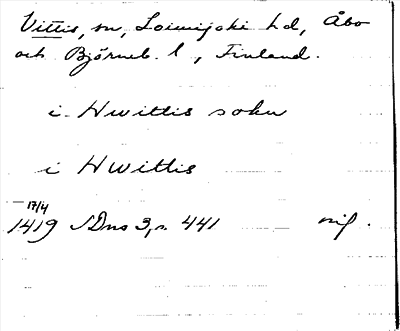 Vittis, sn, Loimijoki hd, Åbo
och Björneb. l, Finland.
i Hwittis sokn
i Hwittis
17/4
1419 SDns 3, s. 441 orig.